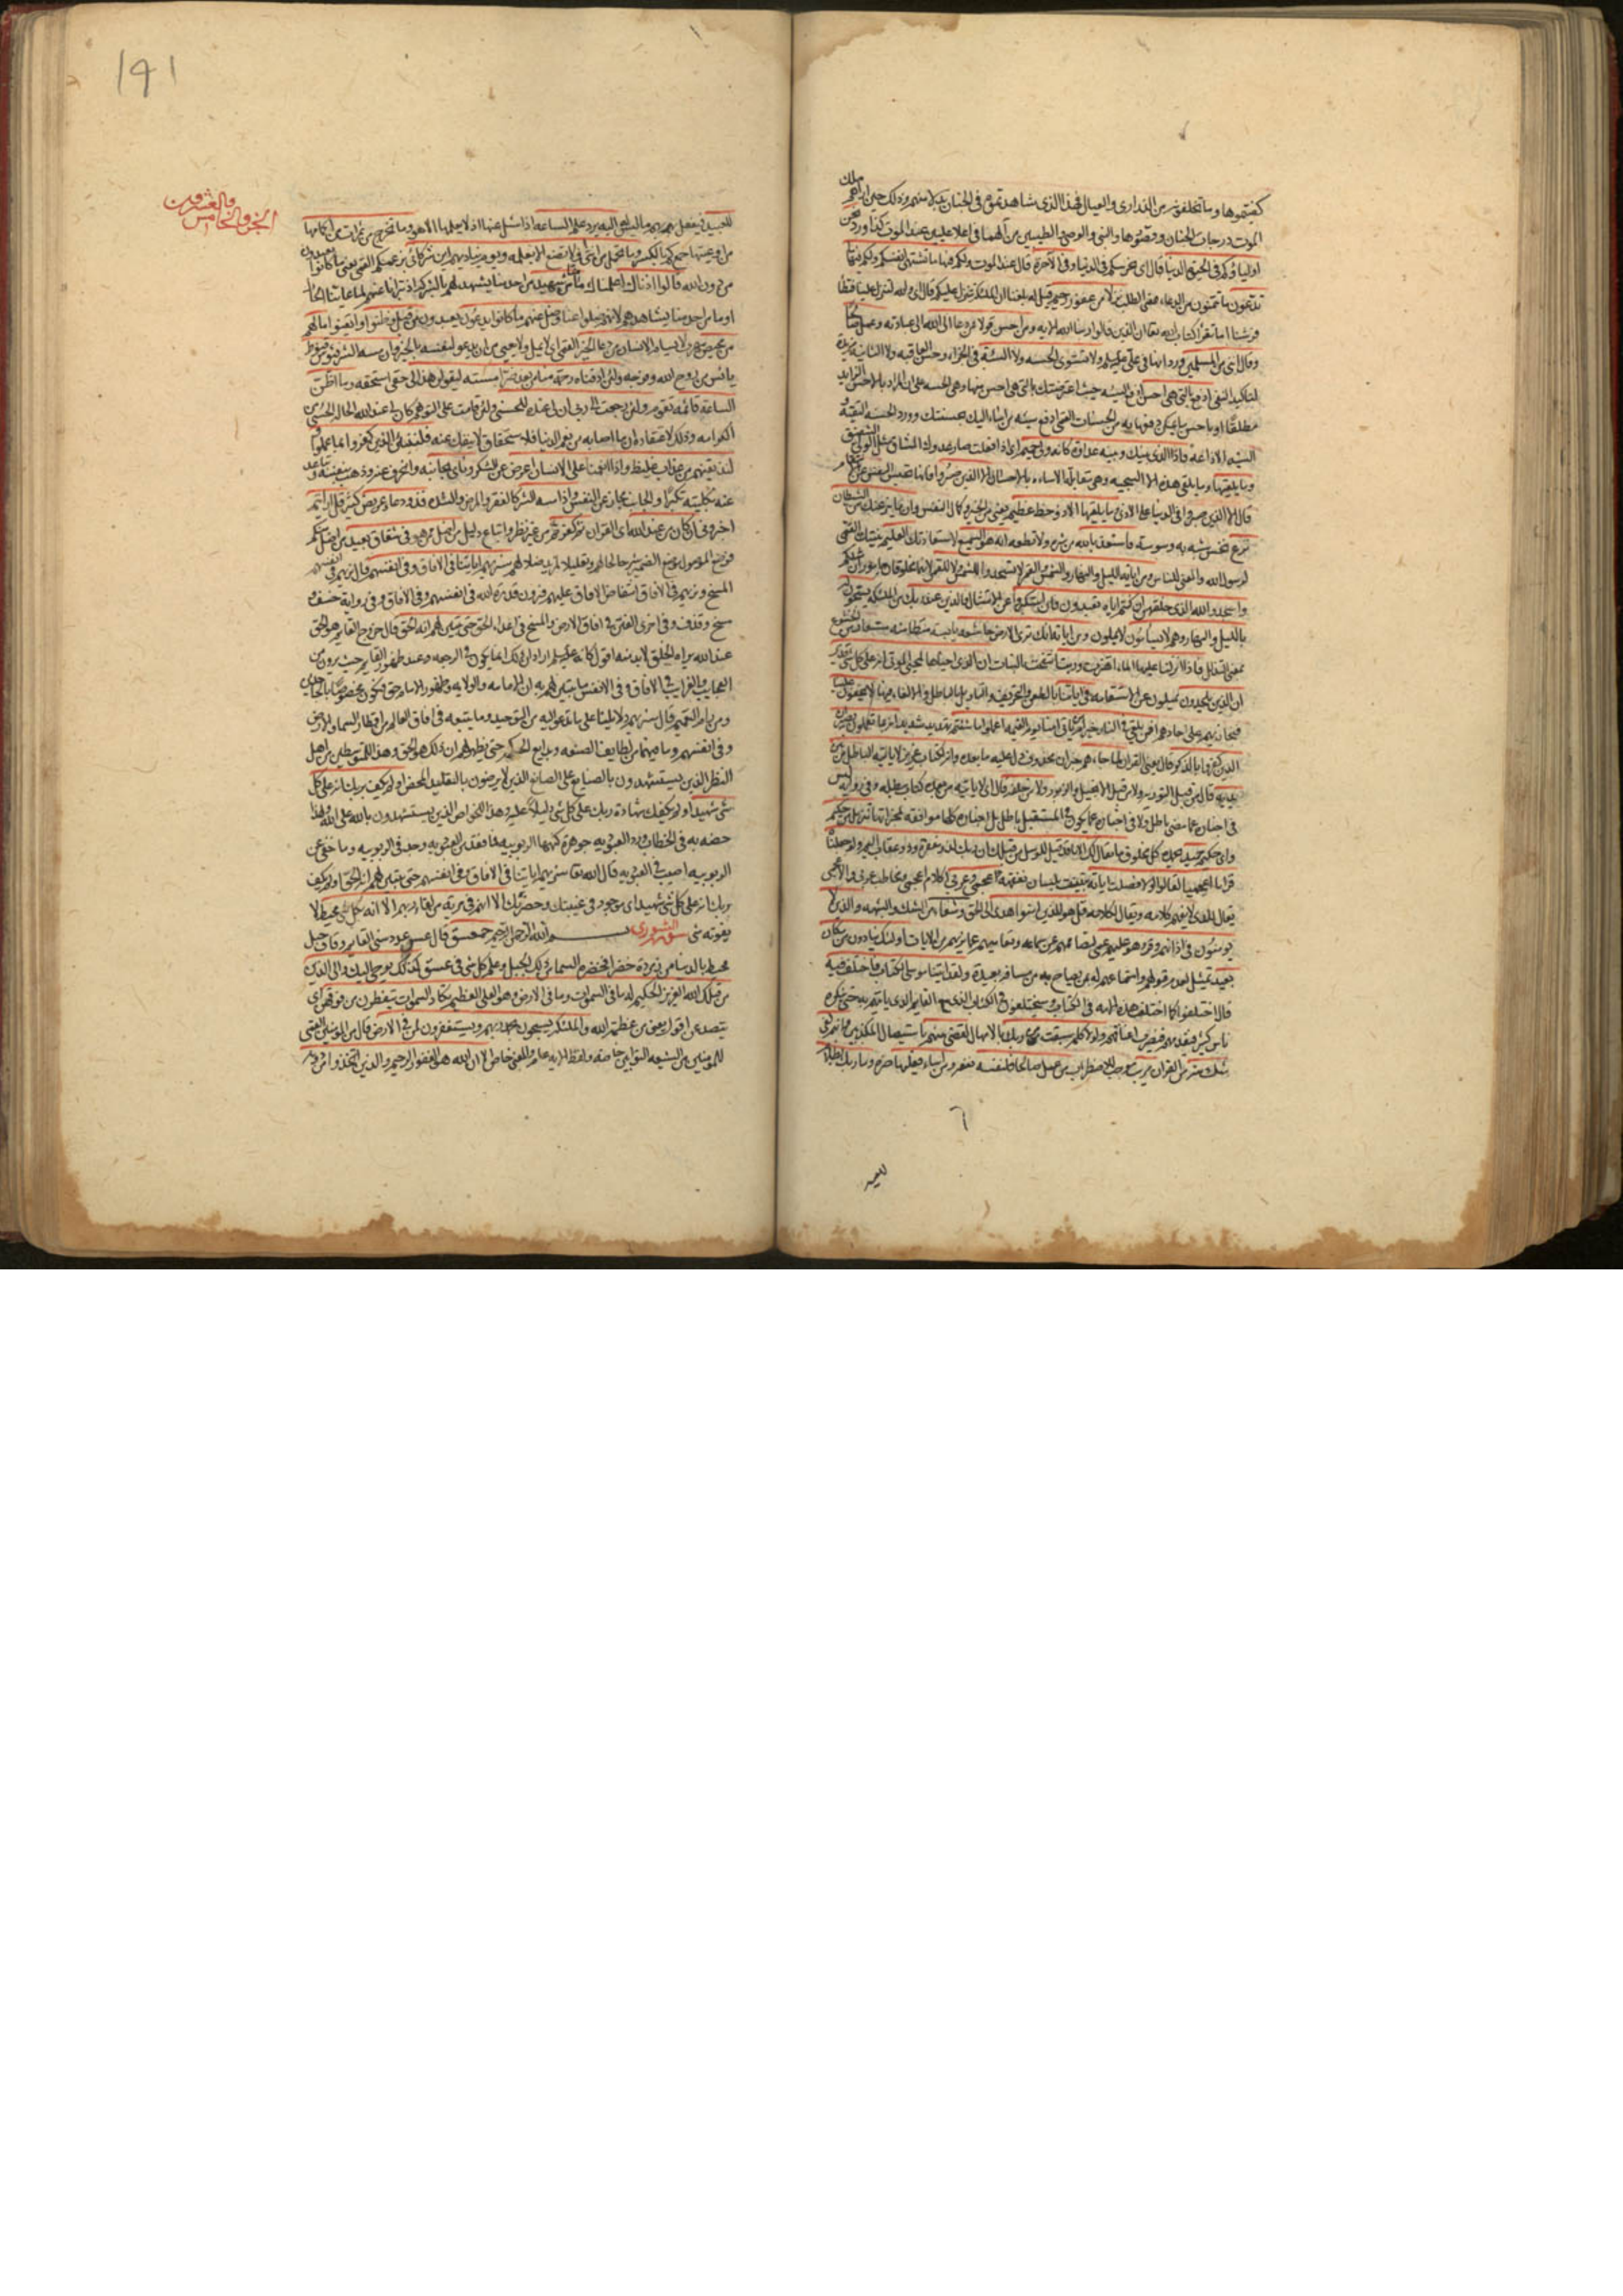 ملك
كنتموها وما تخلفونه من الذراري والعيال فهذا الذي شاهدتموه في الجنان بدلا منهم وذلك حين
الموت درجات الجنان وقصورها والنبي والوصي والطيبين من آلهما في اعلا عليين عند الموت كذا ورد نحن
اولياؤكم في الحيوة الدنيا قال اي نحرسكم في الدنيا وفي الاخرة قال عند الموت ولكم فيها ما تشتهي انفسكم ولكم فيها
تدعون ما تتمنون من الدعاء بمعنى الطلب نزلا من غفور رحيم قيل له بلغنا ان الملئكة تنزل عليكم قال اي والله لتنزل علينا فتطأ
فرشنا اما تقرأ كتاب الله تعا ان الذين قالوا ربنا الله الاية ومن احسن قولا ممن دعا الى الله الى عبادته وعمل صالحا
وقال انني من المسلمين ورد انها في علي عليه السلم ولا تستوي الحسنه ولا السيئة في الجزاء وحسن العاقبه ولا الثانية مزيدة
لتاكيد النفي ادفع بالتي هي احسن ادفع السيئه حيث اعترضتك بالتي هي احسن منها وهي الحسنه على ان المراد بالاحسن الزايد
مطلقا او باحسن ما يمكن دفعها به من الحسنات القمي ادفع سيئه من اساء اليك بحسنتك وورد الحسنه التقية و
السيئه الاذاعه فاذا الذي بينك وبينه عداوة كانه ولي حميم اي اذا فعلت صار عدوك المشاق مثل الولي الشفيق
وما يلقيها وما يلقى هذه السجيه وهي مقابلة الاساءه بالاحسان الا الذين صبروا فانها تحبس النفس عن الانتقام
قال الا الذين صبروا في الدنيا على الاذى وما يلقيها الا ذو حظ عظيم يعني من الخير وكمال النفس واما ينزغنك من الشيطان
نزغ نخس شبه به وسوسته فاستعذ بالله من شره ولا تطعه انه هو السميع لاستعاذتك العليم بنيتك القمي
لرسول الله والمعنى للناس ومن اياته الليل والنهار والشمس والقمر لا تسجدوا للشمس ولا للقمر لانهما مخلوقان ماموران مثلكم
واسجدوا لله الذي خلقهن ان كنتم اياه تعبدون فان استكبروا عن الامتثال فالذين عند ربك من الملئكة يسبحون
بالليل والنهار وهم لا يسامون لا يملون ومن اياته انك ترى الارض خاشعه يابسة متطامنه مستعار من الخشوع
بمعنى التذلل فاذا انزلنا عليها الماء اهتزت وربت انتفخت بالنبات ان الذي احياها لمحيي الموتى انه على كل شئ قدير
ان الذين يلحدون يميلون عن الاستقامه في اياتنا بالطعن والتحريف والتاويل بالباطل والالغاء فيها لا يخفون علينا
فيجازيهم على الحادهم افمن يلقى في النار خير ام من ياتي امنا يوم القيمه اعملوا ما شئتم تهديد شديد انه بما تعملون بصير
الذين كفروا بالذكر قال يعني القران لما جاءهم خبر ان محذوف دل عليه ما بعده وانه لكتاب عزيز لا ياتيه الباطل من بين
يديه قال من قبل التورية ولا من قبل الانجيل والزبور ولا من خلفه قال اي لا ياتيه من بعده كتاب يبطله وفي رواية ليس
في اخباره عما مضى باطل ولا في اخباره عما يكون في المستقبل باطل بل اخباره كلها موافقه لمخبراتها تنزيل من حكيم
واي حكيم حميد يحمده كل مخلوق ما يقال لك الا ما قد قيل للرسل من قبلك ان ربك لذو مغفرة وذو عقاب اليم ولو جعلناه
قرانا اعجميا لقالوا لولا فصلت اياته بينت بلسان نفقهه ءاعجمي وعربي اكلام اعجمي ومخاطب عربي والاعجمي
يقال للذي لا يفهم كلامه ويقال لكلامه قل هو للذين امنوا هدى الى الحق وشفاء من الشك والشبهه والذين لا
يومنون في اذانهم وقر وهو عليهم عمى لتصاممهم عن سماعه وتعاميهم عما يريهم من الايات اولئك ينادون من مكان
بعيد تمثيل لعدم قبولهم واستماعهم له بمن يصاح به من مسافة بعيدة ولقد اتينا موسى الكتاب فاختلف فيه
قال اختلفوا كما اختلف هذه الامه في الكتاب وسيختلفون في الكتاب الذي مع القايم الذي ياتيهم به حتى ينكره
ناس كثير فيقدمهم فيضرب اعناقهم ولولا كلمة سبقت من ربك بالامهال لقضي بينهم باستيصال المكذبين وانهم لفي
شك منه من القران مريب موجب للاضطراب من عمل صالحا فلنفسه نفعه ومن اساء فعليها ضره وما ربك بظلام
للعبيد
١٩١
الجزو الخامس والعشرون
للعبيد فيفعل بهم ما ليس له ان يفعله اليه يرد علم الساعه اذا سئل عنها اذ لا يعلمها الا هو وما تخرج من ثمرات من اكمامها
من اوعيتها جمع كم بالكسر وما تحمل من انثى ولا تضع الا بعلمه ويوم يناديهم اين شركائي بزعمكم القمي يعني ما كانوا يعبدون
من دون الله قالوا اذناك اعلمناك ما منا من شهيد من احد منا يشهد لهم بالشركة اذ تبرانا عنهم لما عاينا الحال
او ما من احد منا يشاهدهم لانهم ضلوا عنا وضل عنهم ما كانوا يدعون يعبدون من قبل وظنوا وايقنوا ما لهم
من محيص مهرب لا يسام الانسان من دعاء الخير القمي اي لا يمل ولا يعيى من ان يدعو لنفسه بالخير وان مسه الشر فيؤس قنوط
يائس من روح الله وفرجه ولئن اذقناه رحمة منا من بعد ضراء مسته ليقولن هذا لي حقي استحقه وما اظن
الساعة قائمة تقوم ولئن رجعت الى ربي ان لي عنده للحسنى ولئن قامت على التوهم كان لي عند الله الحالة الحسنى من
الكرامه وذلك لاعتقاده ان ما اصابه من نعم الدنيا فلاستحقاق لا ينفك عنه فلننبئن الذين كفروا بما عملوا
ولنذيقنهم من عذاب غليظ واذا انعمنا على الانسان اعرض عن الشكر ونأى بجانبه وانحرف عنه وذهب بنفسه وتباعد
عنه بكليته تكبرا والجانب مجاز عن النفس واذا مسه الشر كالفقر والمرض والشدة فذو دعاء عريض كثير قل ارايتم
اخبروني ان كان من عند الله اي القران ثم كفرتم به من غير نظر واتباع دليل من اضل ممن هو في شقاق بعيد من اضل منكم
فوضع الموصول موضع الضمير شرحا لحالهم وتعليلا لمزيد ضلالهم سنريهم اياتنا في الافاق وفي انفسهم قال نريهم في انفسهم
المسخ ونريهم في الافاق انتقاض الافاق عليهم فيرون قدرة الله في انفسهم وفي الافاق وفي رواية خسف و
مسخ وقذف وفي اخرى الفتن في افاق الارض والمسخ في اعداء الحق حتى يتبين لهم انه الحق قال خروج القايم هو الحق
عند الله يراه الخلق لا بد منه اقول كانه عليه السلم اراد ان ذلك انما يكون في الرجعه وعند ظهور القايم حيث يرون من
العجايب والغرايب في الافاق وفي الانفس ما يتبين لهم به ان الامامه والولايه وظهور الامام حق فيكون مخصوصا بالجاحدين
ومن رام التعميم قال سنريهم دلايلنا على ما ندعو اليه من التوحيد وما يتبعه في افاق العالم من اقطار السماء والارض
وفي انفسهم وما فيهما من لطايف الصنعه وبدايع الحكمه حتى يظهر لهم ان ذلك هو الحق وهذا للمتوسطين من اهل
النظر الذين يستشهدون بالصنايع على الصانع الذين لا يرضون بالتقليد المحض اولم يكف بربك انه على كل
شئ شهيد اولم يكفك شهادة ربك على كل شئ دليلا عليه وهذا للخواص الذين يستشهدون بالله على الله ولهذا
خصه به في الخطاب ورد العبوديه جوهرة كنهها الربوبيه فما فقد من العبوديه وجد في الربوبيه وما خفي عن
الربوبيه اصيب في العبوديه قال الله تعا سنريهم اياتنا في الافاق وفي انفسهم حتى يتبين لهم انه الحق اولم يكف
بربك انه على كل شئ شهيد اي موجود في غيبتك وحضرتك الا انهم في مرية من لقاء ربهم الا انه بكل شئ محيط لا
يفوته شئ سورة الشورى بسم الله الرحمن الرحيم حمعسق قال عسق عدد سني القايم وقاف جبل
محيط بالدنيا من زمردة خضراء فخضرة السماء من ذلك الجبل وعلم كل شئ في عسق كذلك يوحي اليك والى الذين
من قبلك الله العزيز الحكيم له ما في السموات وما في الارض وهو العلي العظيم تكاد السموات يتفطرن من فوقهن اي
يتصدعن اقول يعني من عظمة الله والملئكة يسبحون بحمد ربهم ويستغفرون لمن في الارض قال من المومنين القمي
للمومنين من الشيعه التوابين خاصه ولفظ الايه عام والمعنى خاص الا ان الله هو الغفور الرحيم والذين اتخذوا من دونه